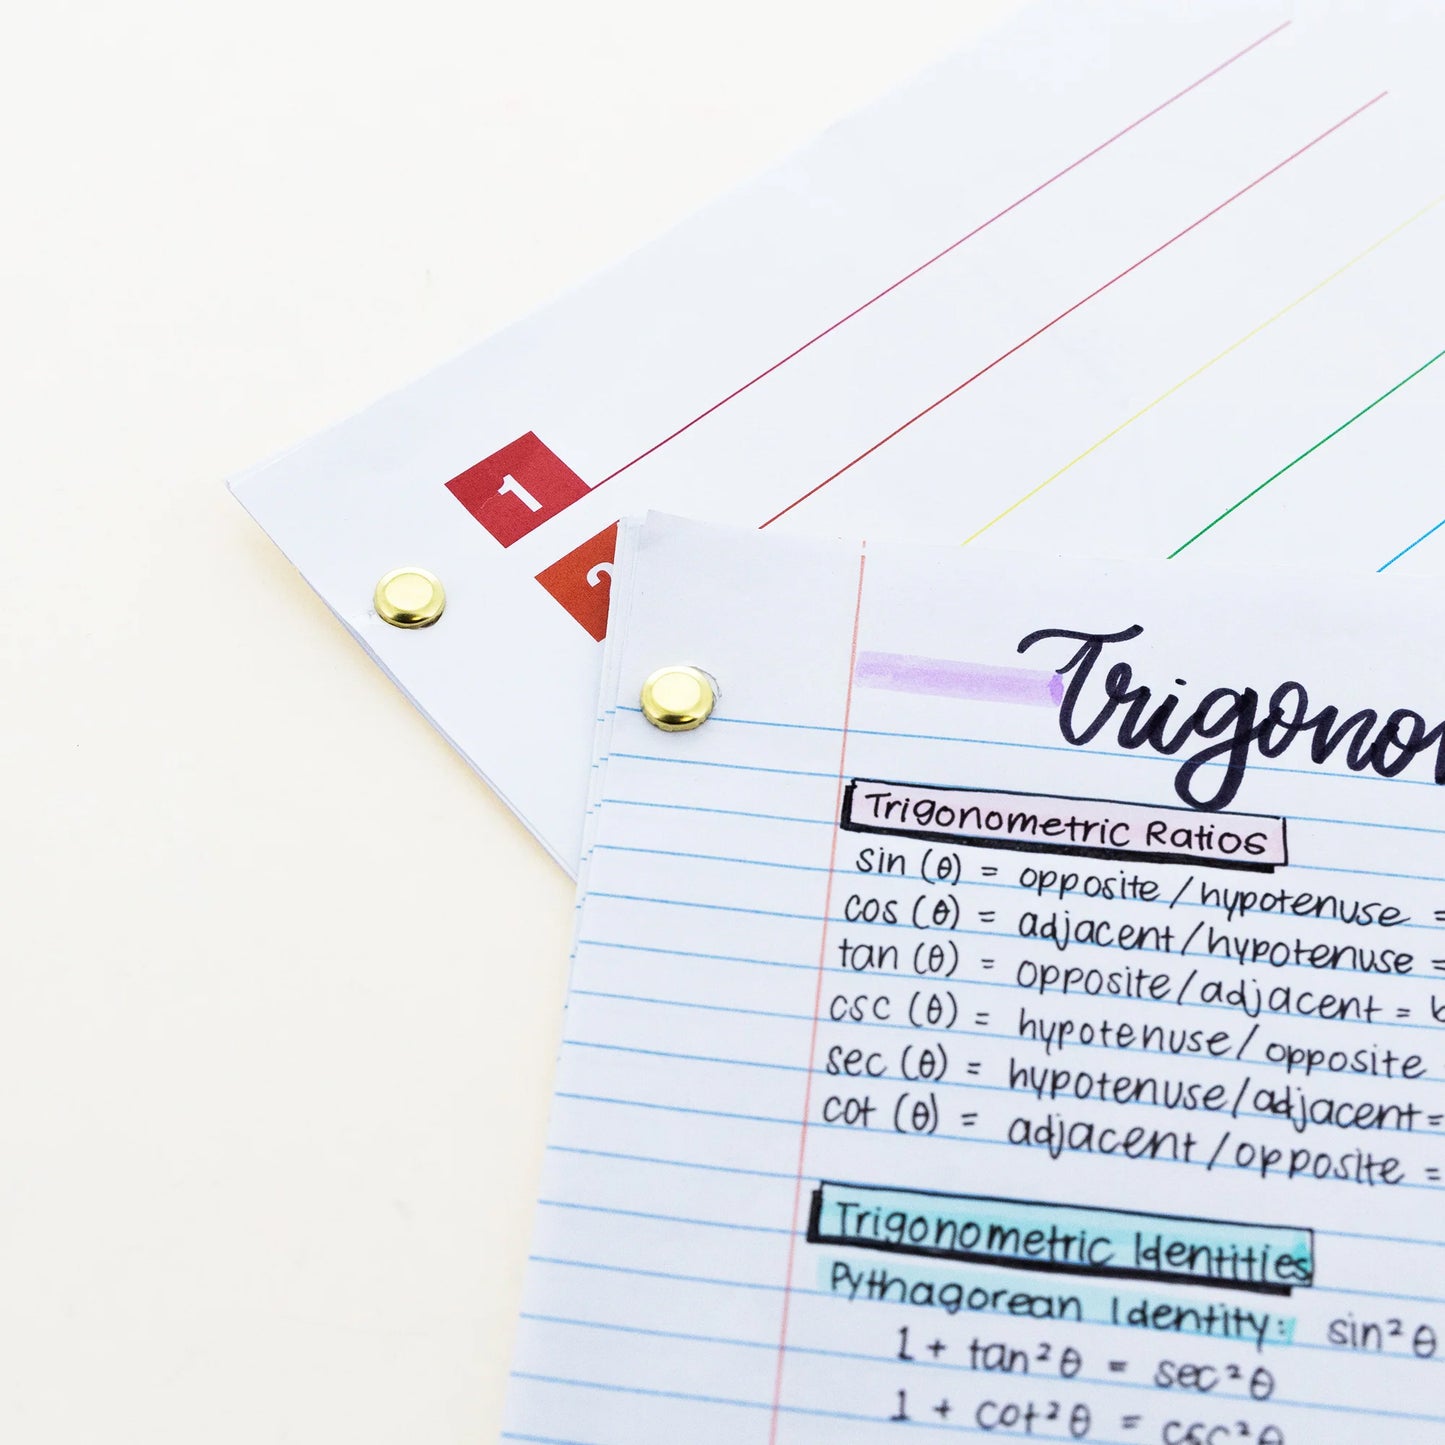 1
2
Trigono
Trigonometric Ratios
sin (θ) = opposite/hypotenuse =
cos (θ) = adjacent/hypotenuse =
tan (θ) = opposite/adjacent =
csc (θ) = hypotenuse/opposite
sec (θ) = hypotenuse/adjacent=
cot (θ) = adjacent/opposite =
Trigonometric Identities
Pythagorean Identity: sin²θ
1 + tan²θ = sec²θ
1 + cot²θ = csc²θ